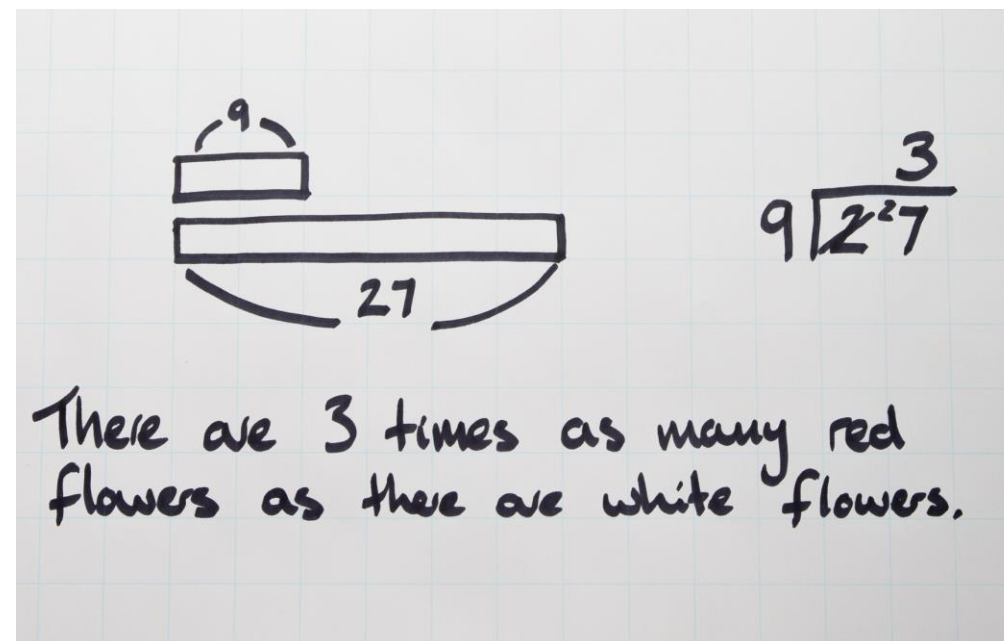 9
27
3
9 2²7
There are 3 times as many red
flowers as there are white flowers.